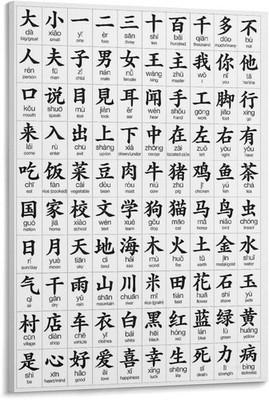 大 小 一 二 三 十 百 千 多 不
dà xiǎo yī èr sān shí bǎi qiān duō bù
big/great small one two three ten hundred thousand much/many not
人 夫 子 男 女 王 主 我 你 他
rén fū zǐ nán nǚ wáng zhǔ wǒ nǐ tā
person man child man woman king I you he
口 说 目 見 耳 闻 手 工 脚 行
kǒu shuō mù jiàn ěr wén shǒu gōng jiǎo xíng
mouth speak eye see ear hear hand work foot
来 入 出 上 下 中 在 左 右 有
lái rù chū shàng xià zhōng zài zuǒ yòu yǒu
come enter left right have
吃 饭 菜 豆 肉 牛 猪 鸡 鱼 茶
chī fàn cài dòu ròu niú zhū jī yú chá
eat vegetable bean meat cow pig chicken fish tea
国 家 校 文 学 狗 猫 马 鸟 虫
guó jiā xiào wén xué gǒu māo mǎ niǎo chóng
country home school dog cat horse bird insect
日 月 天 地 海 木 火 土 金 水
rì yuè tiān dì hǎi mù huǒ tǔ jīn shuǐ
sun/day moon sea wood fire water
气 干 雨 山 川 米 田 花 石 玉
qì gān yǔ shān chuān mǐ tián huā shí yù
air dry rain mountain river rice field flower stone jade
村 店 车 衣 白 黑 红 蓝 绿 黄
cūn diàn chē yī bái hēi hóng lán lǜ huáng
village shop vehicle clothes white black red blue green yellow
是 心 好 爱 喜 幸 生 死 力 病
shì xīn hǎo ài xǐ xìng shēng sǐ lì bìng
be heart/mind good love happiness luck life death strength